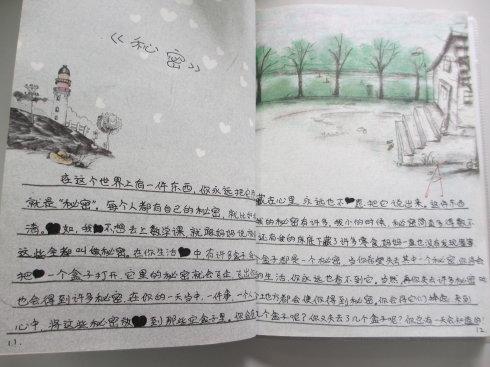 《秘密》
在这个世界上有一件东西,你永远把它藏在心里,永远也不 把它说出来,这件东西
就是“秘密”,每个人都有自己的秘密,就比如我的秘密有许多,我小的时候,秘密简直多得数不
清, 如,我 不想去上数学课,就跟妈妈说 还有我的床底下藏了许多零食,妈妈一直也没有发现
这些全都叫做秘密,在你生活 中有许多盒子,盒子都是一个秘密,当你在 失去其中一个秘密,你将会
把 一个盒子打开,它里的秘密就会飞 飞出 的生活,你永远也看不到它,当然,再你失去许多秘密
也会得到许多秘密,在你的一天当中,一件事,一个人,一个地方都会使你得到秘密,你会将它们 来到
心中,将这些秘密放 到那些空盒子里,你会 几个盒子呢?你又失去了几个盒子呢?你总有一天会知道的!
11.
12.